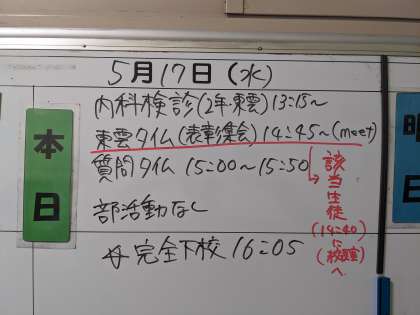 5月17日(水)
本日
内科検診(2年・東雲)13:15～
東雲タイム(表彰集会)14:45～(meet)
質問タイム 15:00～15:50
部活動なし
完全下校 16:05
該当生徒
(14:40)
に
(校長室)
へ
明日